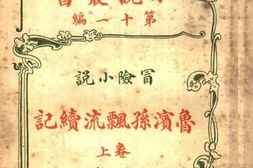 第十一編
冒險小說
魯濱孫飄流續記
卷上